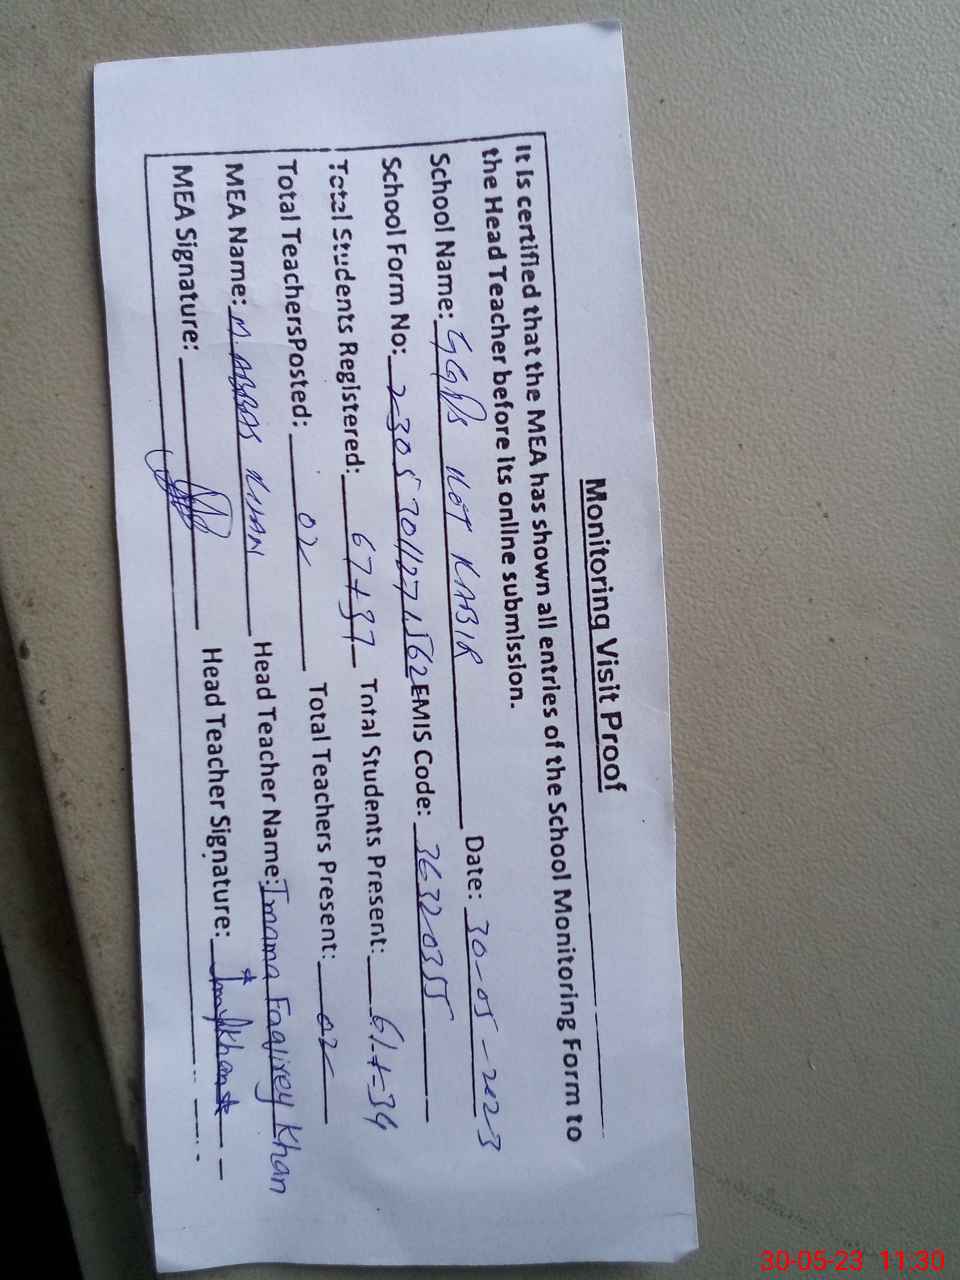 Monitoring Visit Proof
It is certified that the MEA has shown all entries of the School Monitoring Form to
the Head Teacher before its online submission.
School Name: GGPS KOT KABIR Date: 30-05-2023
School Form No: 2305301127 EMIS Code: 36320355
Total Students Registered: 67+37 Total Students Present: 61+34
Total TeachersPosted: 02 Total Teachers Present: 02
MEA Name: M. ABBAS KHAN Head Teacher Name: Imama Khan
MEA Signature: Head Teacher Signature: Khan
30-05-23 11:30